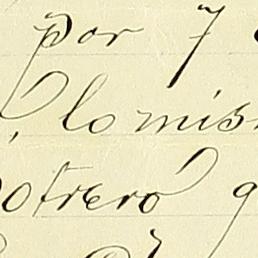 por 7
lo mis
potrero q